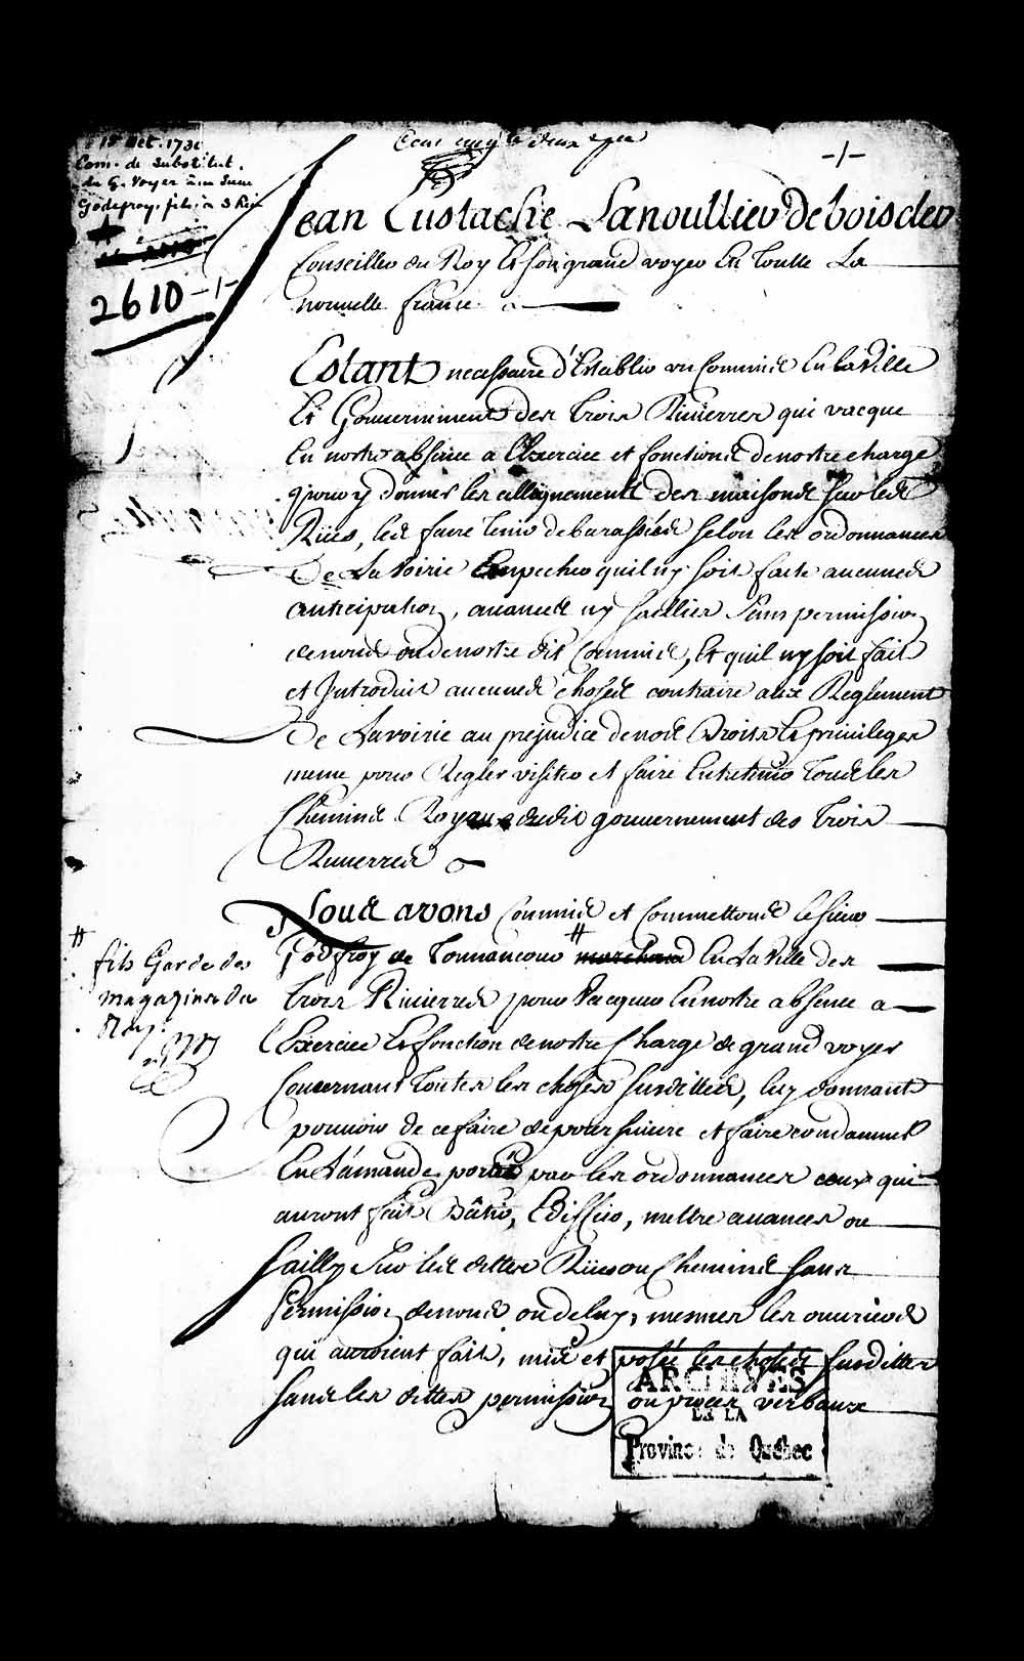 15 Oct. 1731
Com. de Substitut.
du G. Voyer à un Sieur
Godefroy, fils, à 3 Riv
2610 -/-
-/-
Jean Eustache Lanoullier de boisclerc
Conseiller du Roy Et son grand voyer En Toutte La
nouvelle france
Estant necessaire d'Establir un Commis En la Ville
Et Gouvernement des Trois Rivierres qui vacque
En nostre absence a L'Exercice et fonctions de nostre charge
pour y donner les allignements des maisons sur les
Rües, les faire tenir debarassées selon les ordonnances
De La Voirie Empecher quil ny soit faite aucunes
anticipation, avances ny saillies sans permission
de nous ou de nostre dit Commis, Et quil ny soit fait
et Introduit aucunes choses contraire aux Reglement
De La voirie au prejudice de nos Droits Et privileges
meme pour Regler visiter et faire Entretenir Tous les
Chemins Royaux dudit gouvernement des Trois
Rivierres
Nous avons Commis et Commettons le sieur
Godfroy de Tonnancour # marchand En La Ville des
# fils Garde des
magazins du
Roy
Trois Rivierres pour Vacquer En nostre absence a
L'Exercice Et fonction de nostre Charge de grand voyer
Concernant Toutes les choses susdittes, luy donnant
pouvoir de ce faire de poursuivre et faire condamner
En L'amande portée par les ordonnances ceux qui
auront fait Bâtir, Ediffier, mettre avances ou
sailly sur les dittes Rües ou Chemins sans
Permission de nous ou de luy, mesmes les ouvriers
qui auroient fait, mis et posée les choses susdittes
sans les dittes permission ou procès verbaux
ARCHIVES
DE LA
Province de Québec